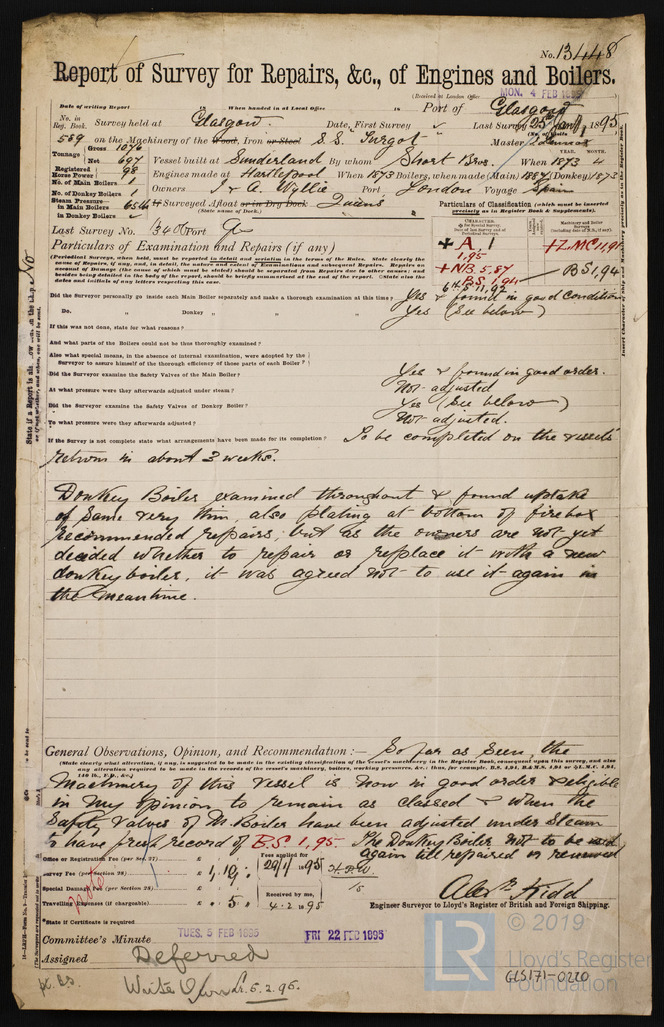 No. 13448
Report of Survey for Repairs, &c., of Engines and Boilers.
(Received at London Office MON. 4 FEB 1895)
Date of writing Report When handed in at Local Office Port of Glasgow
No. in Reg. Book. Survey held at Glasgow. Date, First Survey Last Survey 25 Jany 1895
589 on the Machinery of the Wood, Iron or Steel S.S. "Turgot" Master
Tonnage Gross 1076
Net 697 Vessel built at Sunderland By whom Short Bros. When 1873 4
YEAR. MONTH.
Registered Horse Power 98 Engines made at Hartlepool When 1873 Boilers, when made (Main) 1887 (Donkey) 1873
No. of Main Boilers 1
No. of Donkey Boilers 1 Owners J & A. Wyllie Port London Voyage Spain
Steam Pressure in Main Boilers 65 lb If Surveyed Afloat or in Dry Dock Queens
(State name of Dock.)
in Donkey Boilers
Particulars of Classification (which must be inserted precisely as in Register Book & Supplements).
Last Survey No. 13401 Port
+ A, 1
1,95
+ NB. 5,87
BS 1,94
+ LMC 11,91
BS 1,94
Particulars of Examination and Repairs (if any)
(Periodical Surveys, when held, must be reported in detail and seriatim in the terms of the Rules. State clearly the cause of Repairs, if any, and, in detail, the nature and extent of Examinations and subsequent Repairs. Repairs on account of Damage (the cause of which must be stated) should be separated from Repairs due to other causes; and besides being detailed in the body of the report, should be briefly summarised at the end of the report. State also the dates and initials of any letters respecting this case.
Did the Surveyor personally go inside each Main Boiler separately and make a thorough examination at this time? Yes & found in good condition
Do. " Donkey " " Yes (See below)
If this was not done, state for what reasons?
And what parts of the Boilers could not be thus thoroughly examined?
Also what special means, in the absence of internal examination, were adopted by the Surveyor to assure himself of the thorough efficiency of those parts of each Boiler?
Did the Surveyor examine the Safety Valves of the Main Boiler? Yes & found in good order.
At what pressure were they afterwards adjusted under steam? Not adjusted
Did the Surveyor examine the Safety Valves of Donkey Boiler? Yes (See below)
To what pressure were they afterwards adjusted? Not adjusted.
If the Survey is not complete state what arrangements have been made for its completion? To be completed on the vessels
return in about 3 weeks.
Donkey Boiler examined throughout & found uptake
of same very thin, also plating at bottom of firebox
recommended repairs, but as the owners are not yet
decided whether to repair or replace it with a new
donkey boiler, it was agreed not to use it again in
the meantime.
General Observations, Opinion, and Recommendation:— So far as seen, the
(State clearly what alteration, if any, is suggested to be made in the existing classification of the vessel's machinery in the Register Book, consequent upon this survey, and also any alteration required to be made in the records of the vessel's machinery, boilers, working pressures, &c.; thus, for example, B.S. 4,94, B.&M.S. 4,94 or L.M.C. 4,94, 140 lb., F.D., &c.)
Machinery of this vessel is now in good order & eligible
in my opinion to remain as classed & when the
Safety Valves of M. Boiler have been adjusted under steam
to have fresh record of B.S 1,95 The Donkey Boiler not to be used
again till repaired or renewed
Office or Registration Fee (per Sec. 27) £
Fees applied for 29/1/1895
Survey Fee (per Section 28) £ 1 , 10 ,
Special Damage Fee (per Section 28) £
Received by me, 4.2.1895
Travelling Expenses (if chargeable) £ , 5 ,
Alexr. Kidd
Engineer Surveyor to Lloyd's Register of British and Foreign Shipping.
*State if Certificate is required
Committee's Minute TUES. 5 FEB 1895 FRI 22 FEB 1895
Assigned Deferred
© 2019
LR
Lloyd's Register
Foundation
GLS171-0220